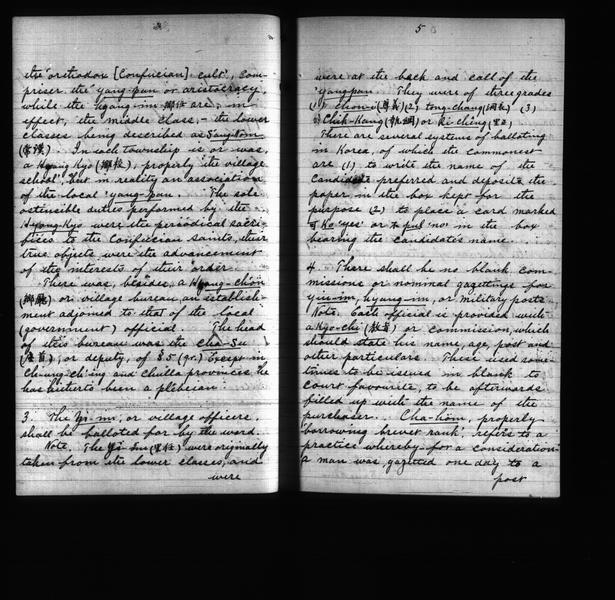 the orthodox [Confucian] cult, com-
prises the yang-pan or aristocracy,
while the hyang-in are, in
effect, the middle class, - the lower
classes being described as Sang-nom
(常漢). In each township is or was
a Hyang Kyo (鄉校), properly the village
school, but in reality an association
of the local yang-pan. The sole
ostensible duties performed by the
Hyang-Kyo were the periodical sacri-
fices to the Confucian saints, their
true objects were the advancement
of the interests of their order.
There was, besides, a Hyang-chön
(鄉廳) or village bureau, an establish-
ment adjoined to that of the local
(government) official. The head
of this bureau was the Cha-Su
(座首), or deputy, of $5 (gr.) Except in
Ch'ung-ch'ing and Chulla provinces he
has hitherto been a plebeian.
3. The Yi-im, or village officers
shall be balloted for by the ward.
Note. The Yi-Im were originally
taken from the lower classes, and
were
5
were at the back and call of the
yangpan. They were of three grades
(1) chon-i (尊義) (2) tong-chang (洞長) (3)
Chik-Kang (執綱) or ki-ching
There are several systems of balloting
in Korea, of which the commonest
are (1) to write the name of the
candidate preferred and deposit the
paper in the box kept for the
purpose (2) to place a card marked
可 Ka 'yes' or 不 put 'no' in the box
bearing the candidate's name.
4. There shall be no blank com-
missions or nominal gazettings for
yu-im, hyang-im, or military posts.
Note. Each official is provided with
a Kyo-chi (敎旨) or commission, which
should state his name, age, post and
other particulars. These used some-
times to be issued in blank to
Court favourites, to be afterwards
filled up with the name of the
purchaser. Cha-ham, properly
'borrowing brevet rank', refers to a
practice whereby for a consideration
a man was gazetted one day to a
post